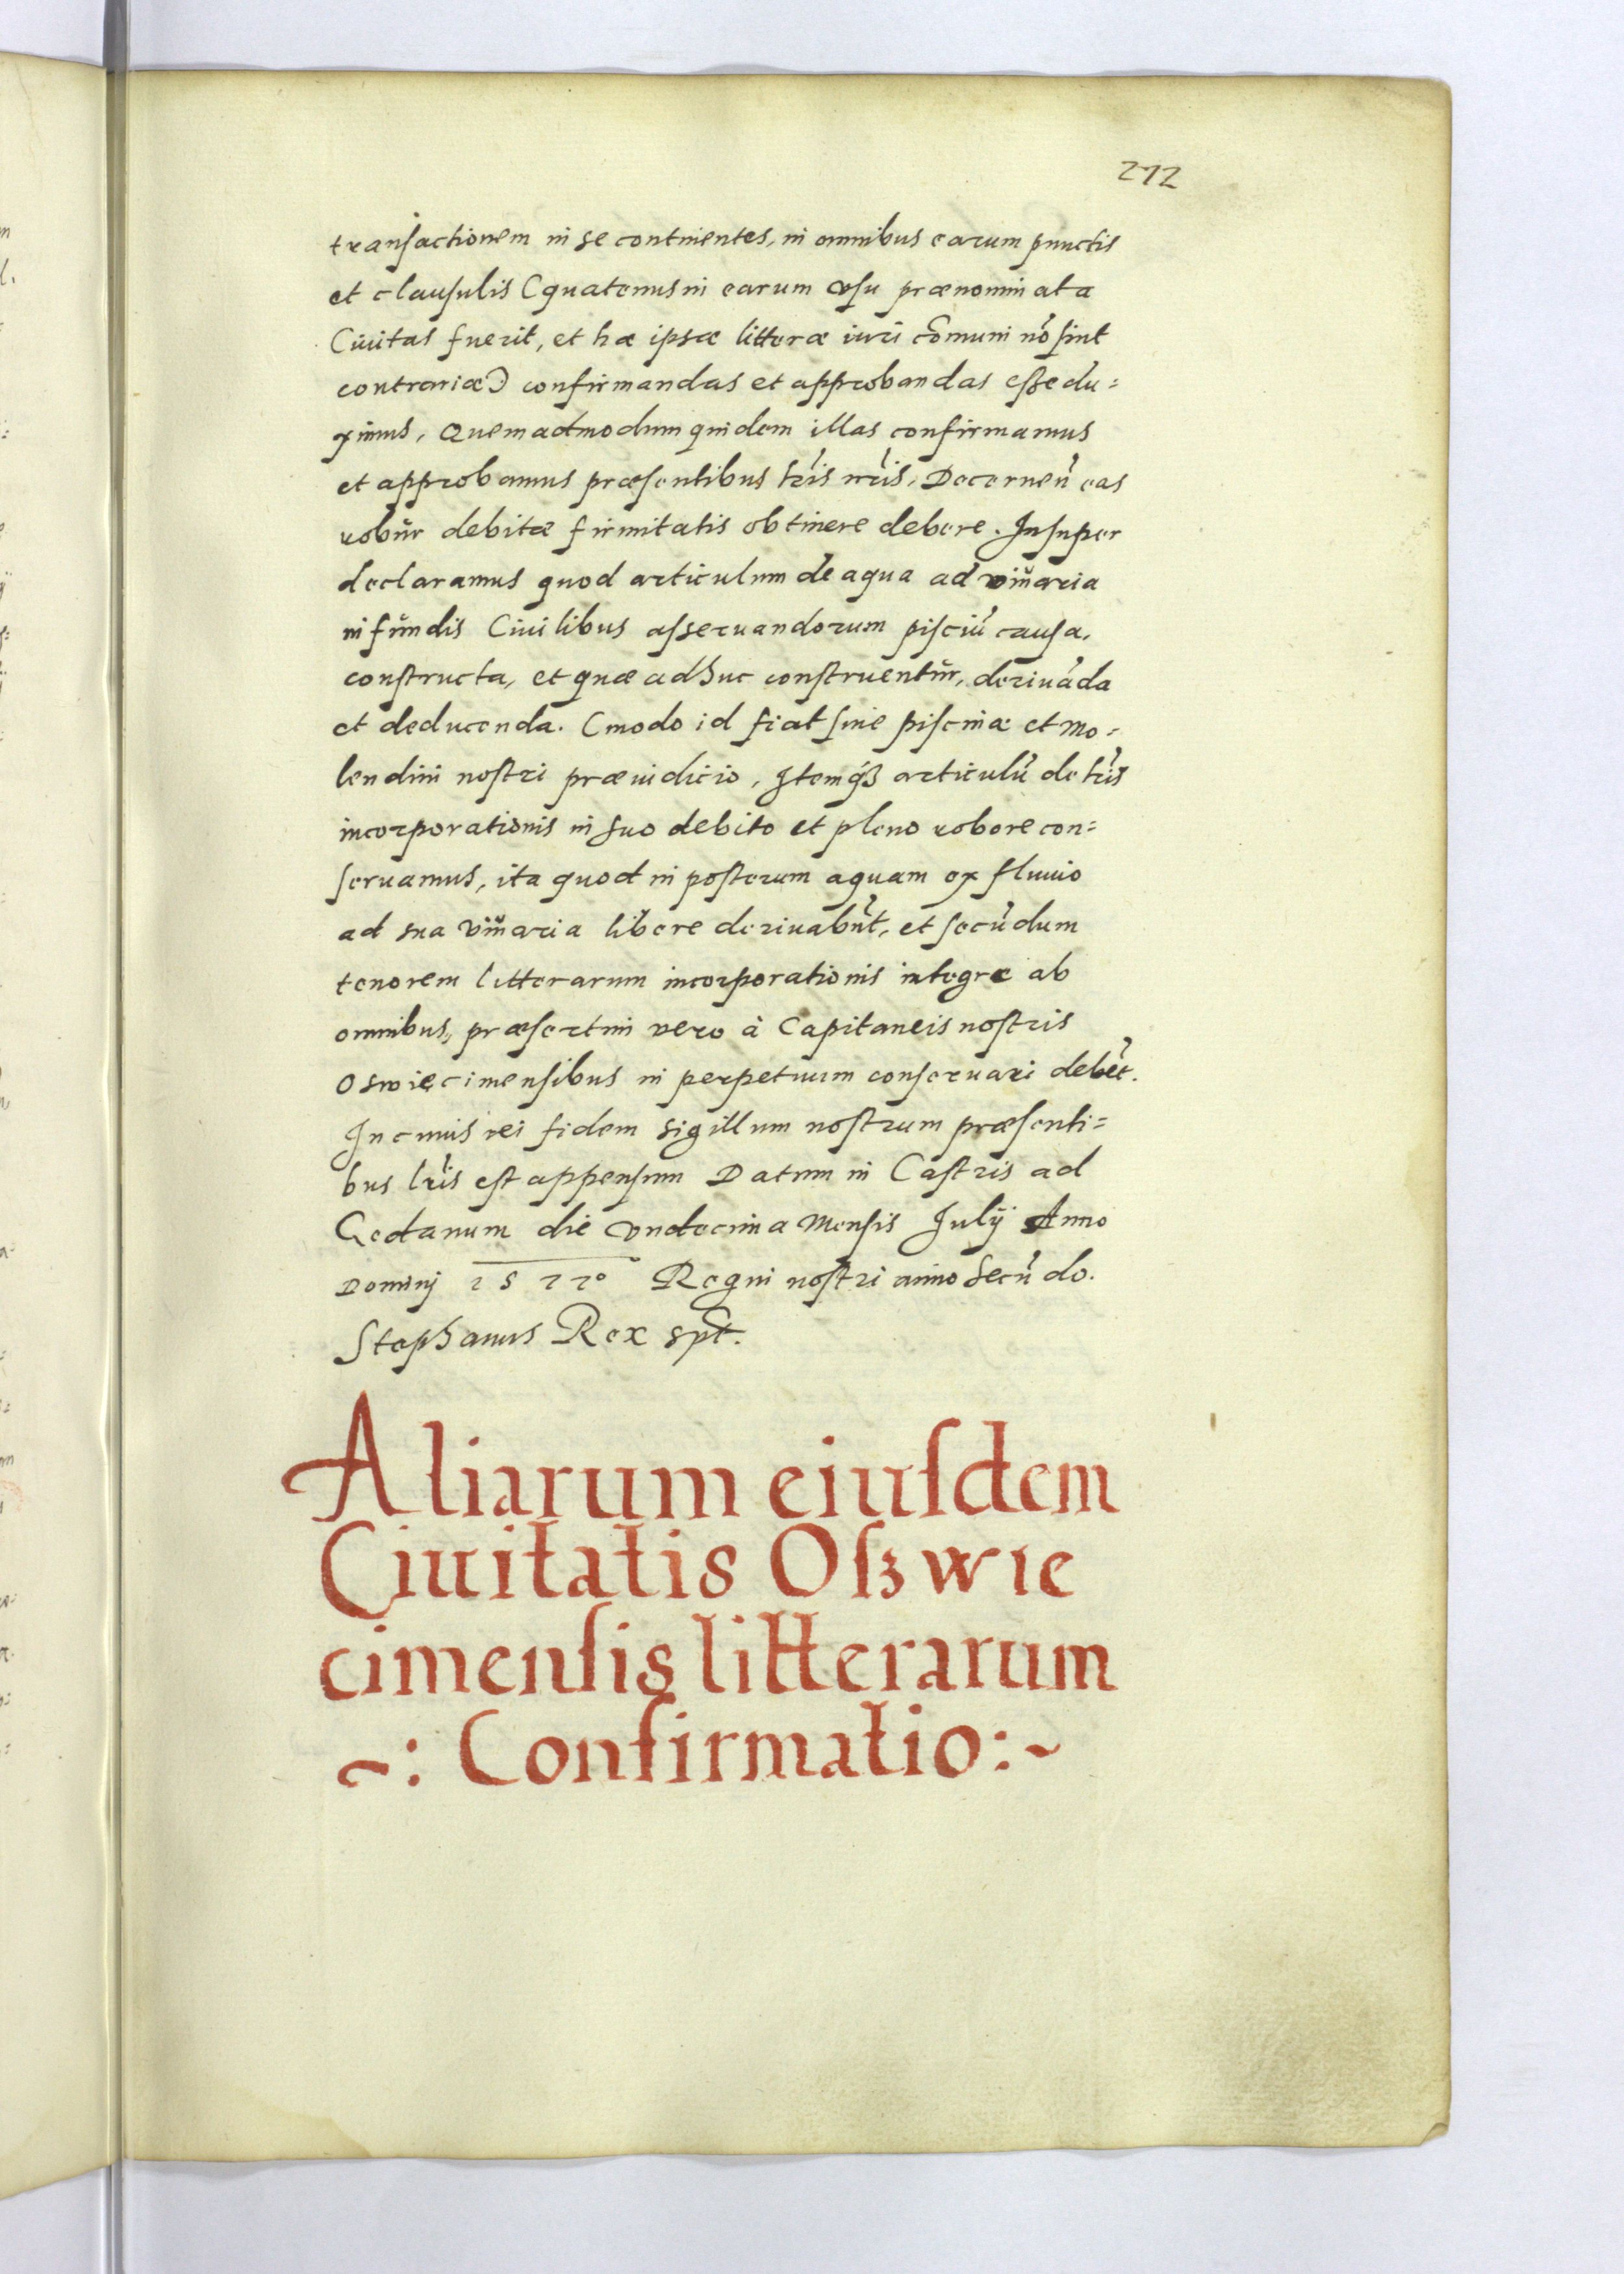 272
transactionem in se continentes, in omnibus earum punctis
et clausulis (quatenus in earum vsu prænominata
Ciuitas fuerit, et hæ ipsæ litteræ iuri cōmuni nō sint
contrariæ) confirmandas et approbandas esse du=
ximus, Quemadmodum quidem illas confirmamus
et approbamus præsentibus lris nris, Decernen̄ eas
robur debitæ firmitatis obtinere debere. Insuper
declaramus quod articulum de aqua ad viuaria
in fundis Ciuilibus asseruandorum pisciū causa,
constructa, et quæ adhuc construentur, deriuāda
et deducenda. (modo id fiat sine piscinæ et Mo=
lendini nostri præiudicio, Itemq3 articulū de lris
incorporationis in suo debito et pleno robore con=
seruamus, ita quod in posterum aquam ex fluuio
ad sua viuaria libere deriuabūt, et secūdum
tenorem litterarum incorporationis integre ab
omnibus, præsertim vero à Capitaneis nostris
Oswiecimensibus in perpetuum conseruari debēt.
In cuius rei fidem sigillum nostrum præsenti=
bus lris est appensum Datum in Castris ad
Gedanum die vndecima Mensis Julij Anno
Dominj 1577º Regni nostri anno secūdo.
Stephanus Rex spt.
Aliarum eiusdem
Ciuitatis Oszwie
cimensis litterarum
~: Confirmatio:~